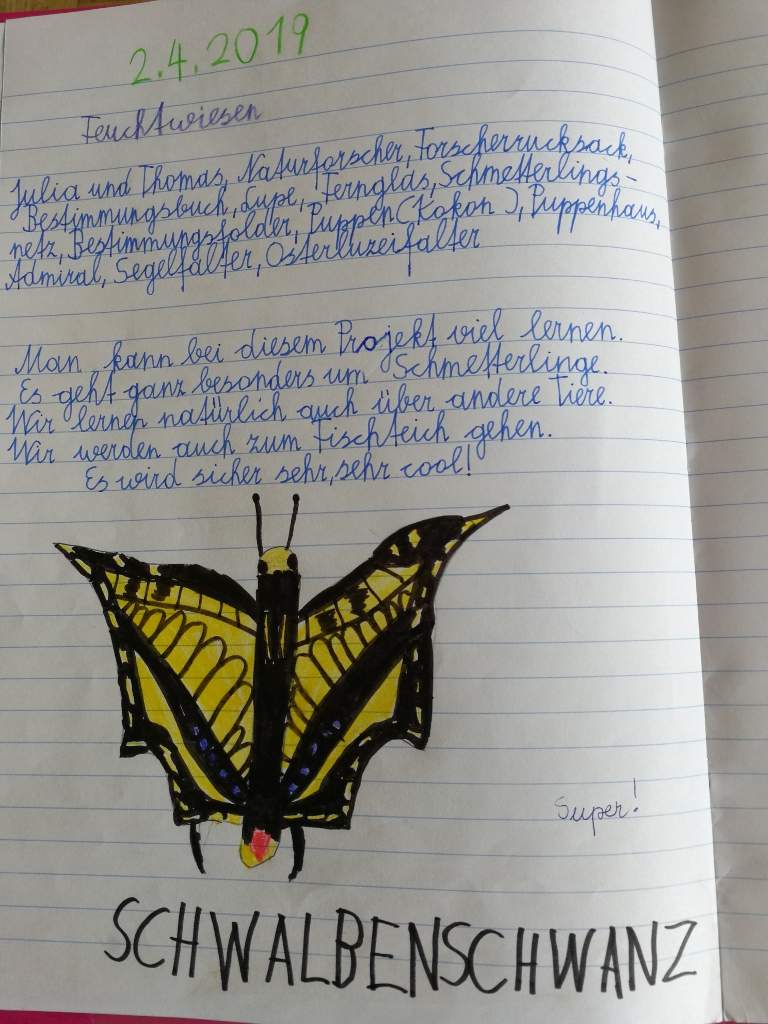 2.4.2019
Feuchtwiesen
Julia und Thomas, Naturforscher, Forscherrucksack,
Bestimmungsbuch, Lupe, Fernglas, Schmetterlings-
netz, Bestimmungsfolder, Puppen (Kokon), Puppenhaus,
Admiral, Segelfalter, Osterluzeifalter
Man kann bei diesem Projekt viel lernen.
Es geht ganz besonders um Schmetterlinge.
Wir lernen natürlich auch über andere Tiere.
Wir werden auch zum Fischteich gehen.
Es wird sicher sehr, sehr cool!
Super!
SCHWALBENSCHWANZ